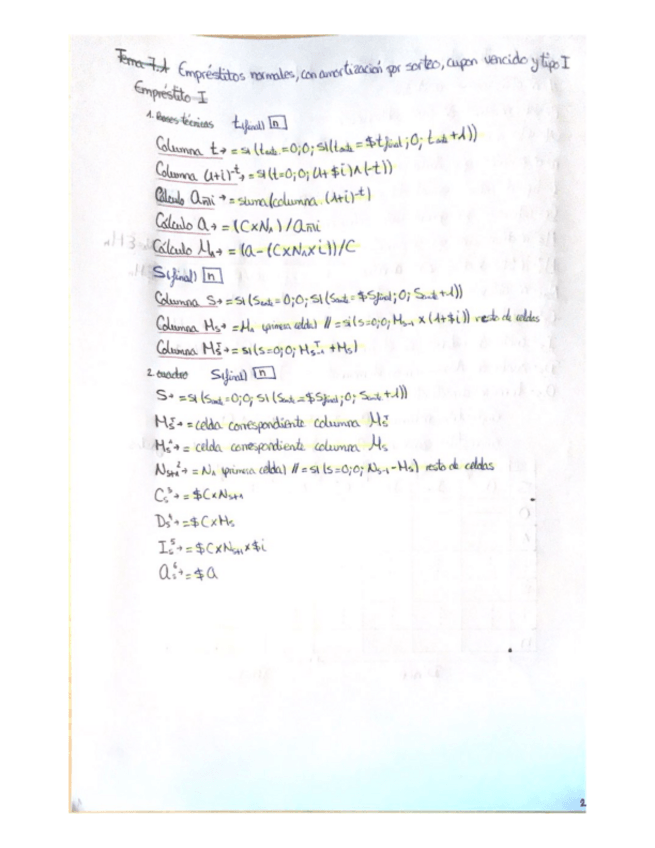 Tema 7.1 Empréstitos normales, con amortización por sorteo, cupon vencido y tipo I
Empréstito I
1. Bases técnicas t(final) n
Columna t → = si(t_ant. = 0; 0; si(t_ant. = $t final; 0; t_ant + 1))
Columna (1+i)^-t → = si(t=0; 0; (1+$i)^(-t))
Cálculo a_n¬i → = suma(columna (1+i)^-t)
Cálculo a → = (C x N_1) / a_n¬i
Cálculo M_1 → = (a - (C x N_1 x i)) / C
S(final) n
Columna S → = si(S_ant. = 0; 0; si(S_ant. = $S final; 0; S_ant. + 1))
Columna M_s → = M_1 (primera celda) // = si(s=0; 0; M_s-1 x (1+$i)) resto de celdas
Columna M_s^T → = si(s=0; 0; M_s-1^T + M_s)
2. cuadro S(final) n
S → = si(S_ant. = 0; 0; si(S_ant. = $S final; 0; S_ant. + 1))
M_s^T → = celda correspondiente columna M_s^T
M_s^1 → = celda correspondiente columna M_s
N_s+1^2 → = N_1 (primera celda) // = si(s=0; 0; N_s-1 - M_s) resto de celdas
C_s^3 → = $C x N_s+1
D_s^4 → = $C x M_s
I_s^5 → = $C x N_s+1 x $i
a_s^6 → = $a
2